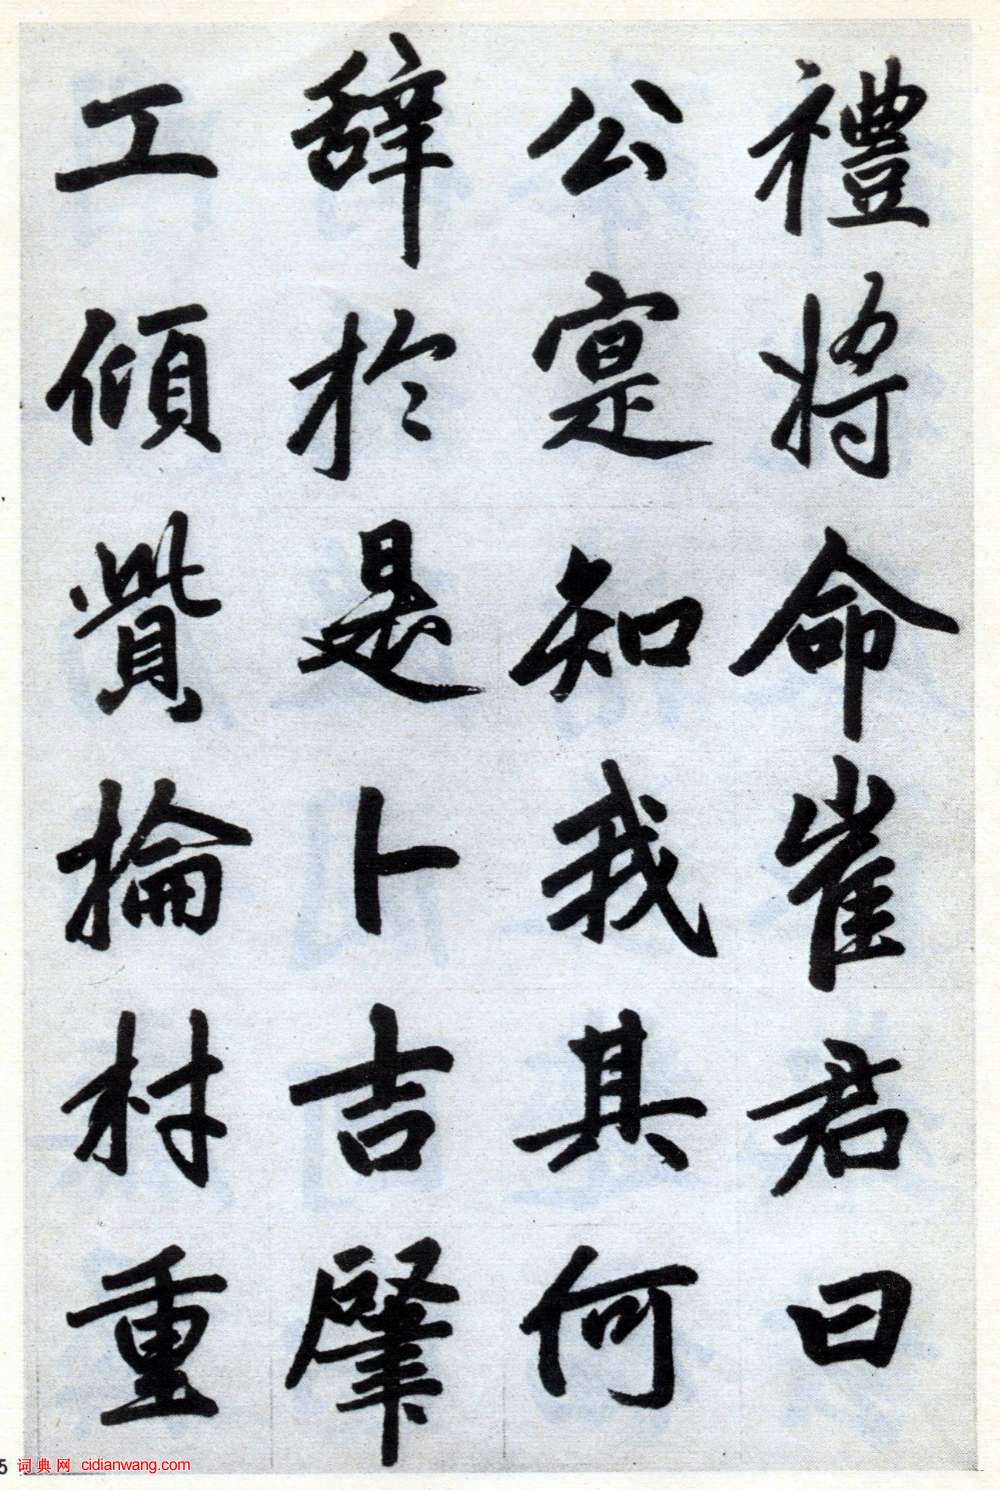 禮將命崔君曰
公寔知我其何
辞於是卜吉肈
工傾貲掄材重
5 词典网 cidianwang.com